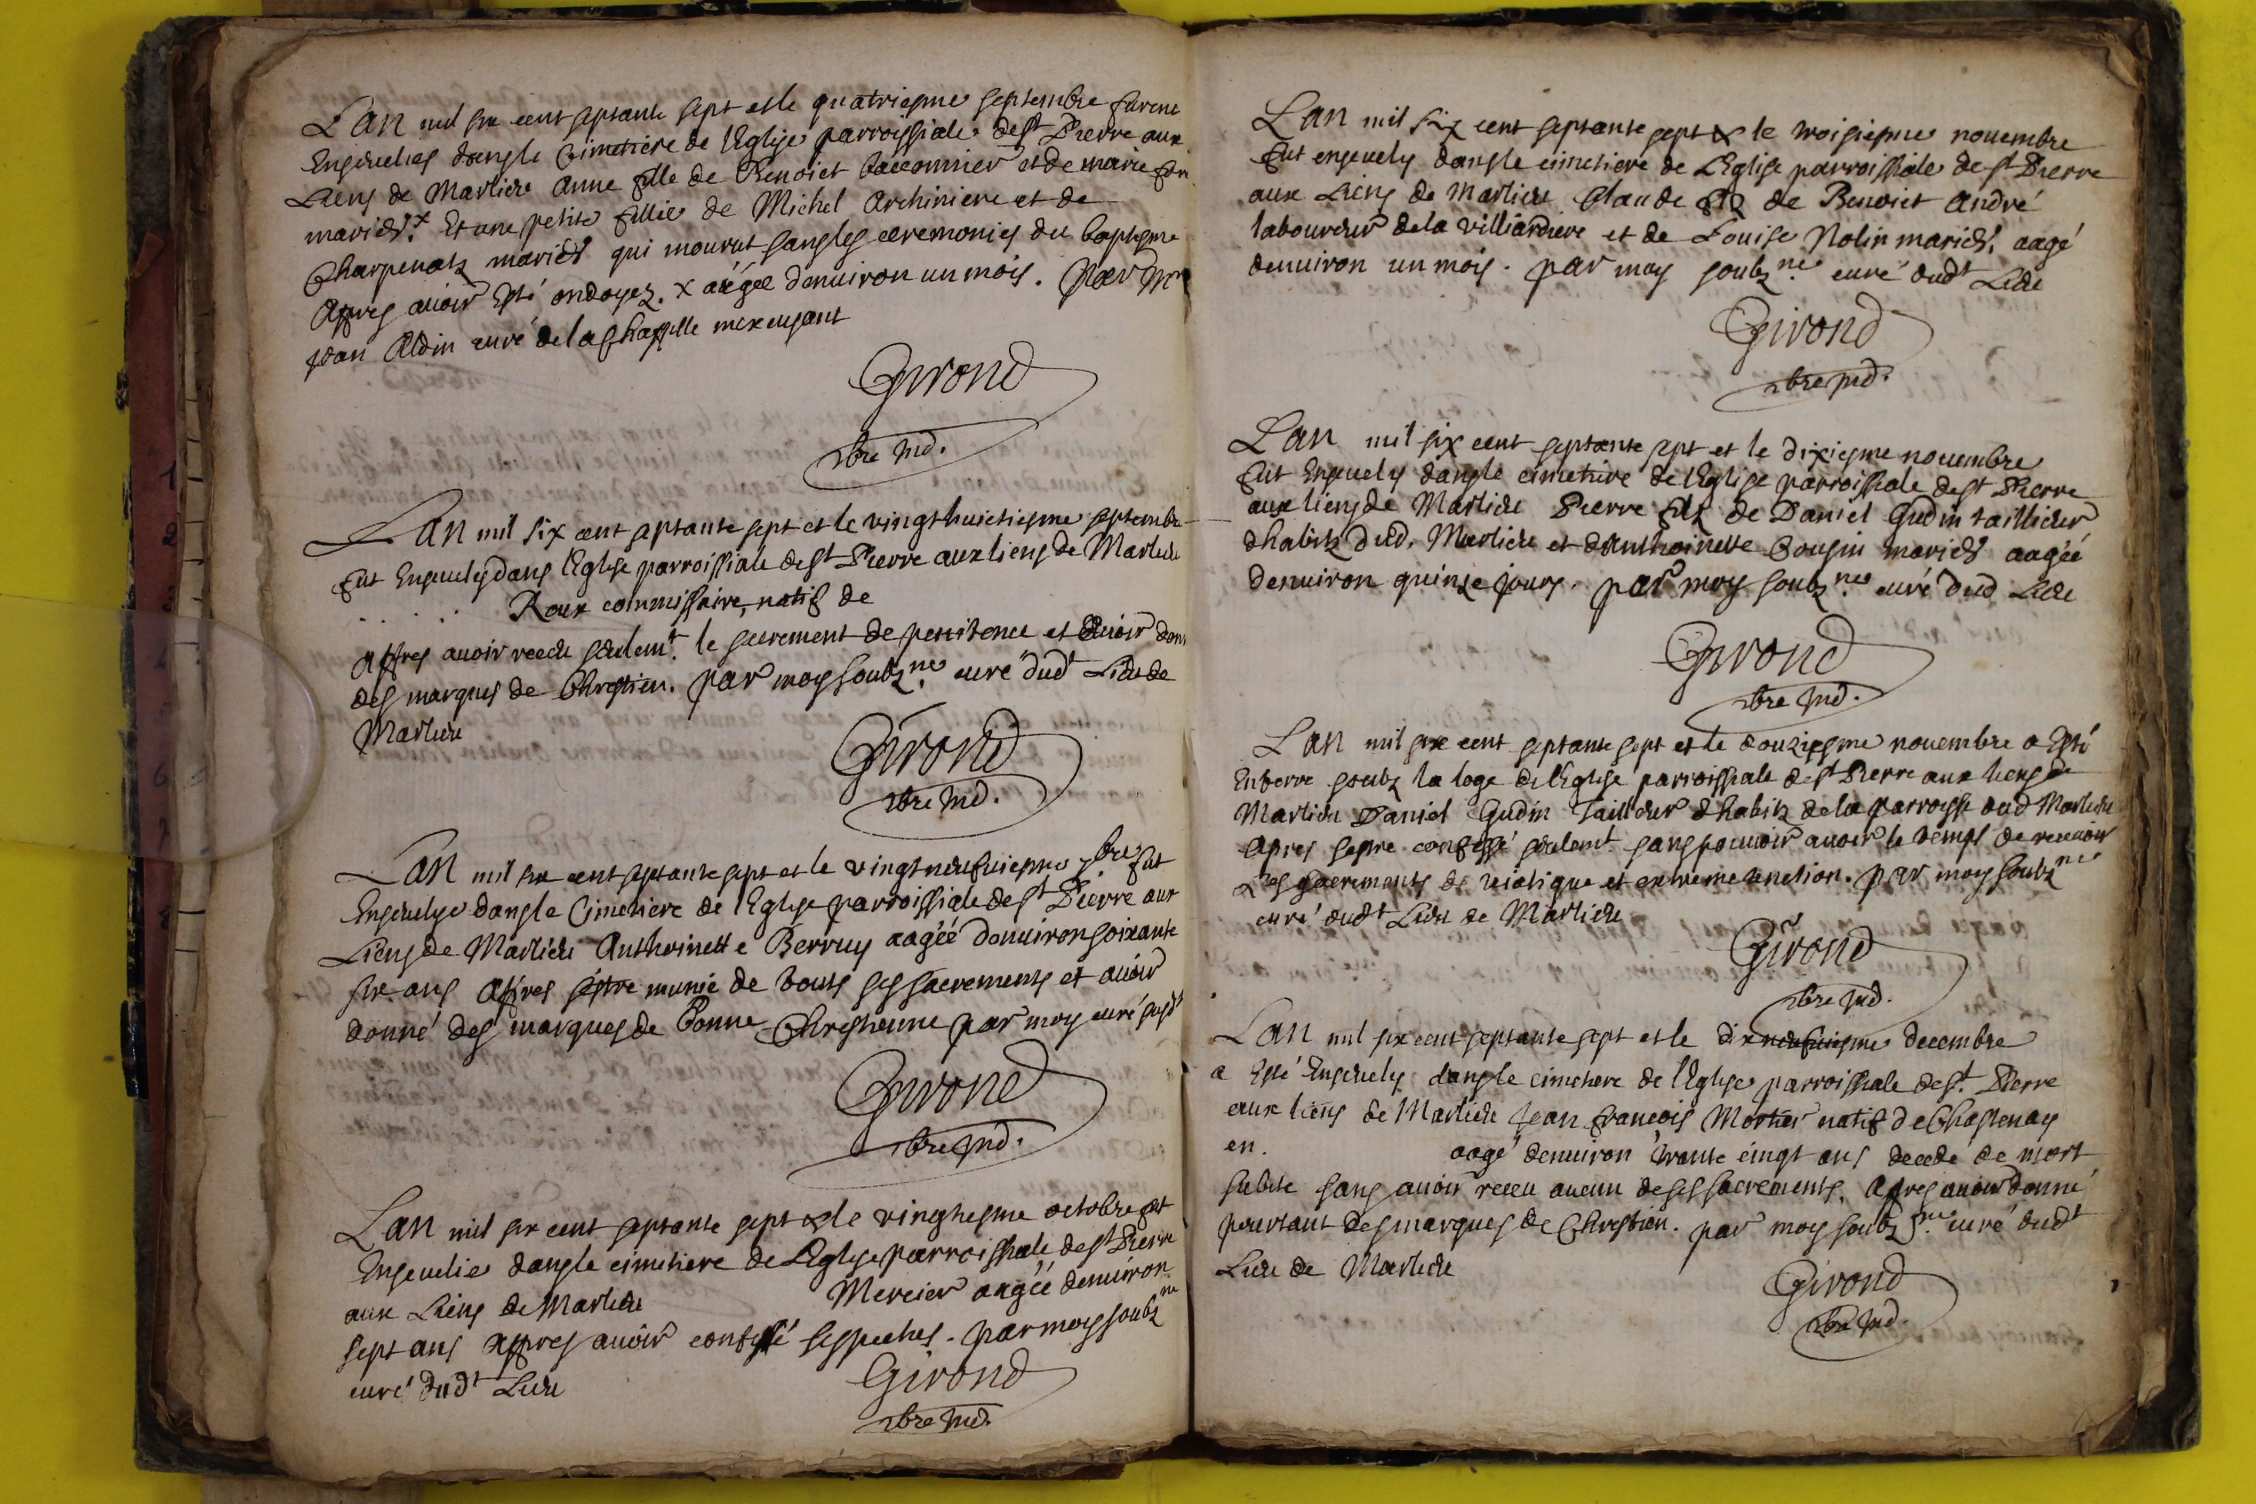 Lan mil six cent septante sept et le quatriesme septembre furent
Enseuelies dansle Cimetiere de lEglise parroissiale de st Pierre aux
Liens de Marlieu Anne fille de Benoict bacconnier et de marie
mariés. x Et une petite fillie de Michel Archiniere et de
Charpenatz mariés qui mourut sansles ceremonies du baptesme
Apres auoir Esté ondoyez. x aagée denuiron un mois. par Mre
jean Aldin curé de la Chappelle mexcusant
Girond
pbre Ind.
Lan mil six cent septante sept et le vingt huictiesme septembre
fut Enseuely dans lEglise parroissiale de st Pierre aux liens de Marlieu
. . Roux commissaire, natif de
Apres auoir receu seulemt. le sacrement de penitence et auoir donné
des marques de Chrestien. par moy soubzne. curé dudt Lieu de
Marlieu
Girond
pbre Ind.
Lan mil six cent septante sept et le vingt neufuiesme 7bre fut
Enseuelye dansle Cimetiere de lEglise parroissiale de st Pierre aux
Liens de Marlieu Anthoinette Berruy aagéé denuiron soixante
six ans Apres sestre munie de touts ses sacrements et auoir
donné des marques de bonne Chrestienne par moy curé susdt
Girond
pbre Ind.
Lan mil six cent septante sept & le vingtiesme octobre fut
Enseuelie dansle cimetiere de LEglise parroissiale de st Pierre
aux Liens de Marlieu Mercier aagéé denuiron
sept ans Apres auoir confessé ses pechés. par moy soubzne
curé dudt Lieu
Girond
pbre Ind.
Lan mil six cent septante sept & le troisiesme nouembre
fut enseuely dansle cimetiere de LEglise parroissiale de st Pierre
aux Liens de Marlieu Claude filz de Benoict André
laboureur de la Villiardiere et de Louise Nolin mariés, aagé
denuiron un mois. par moy soubzne. curé dudt Lieu
Girond
pbre Ind.
Lan mil six cent septante sept et le dixiesme nouembre
fut Enseuely dansle cimetiere de lEglise parroissiale de st Pierre
aux liens de Marlieu Pierre filz de Daniel Gudin taillieur
dhabitz dud. Marlieu et dAnthoinette Cousin mariés aagéé
denuiron quinze jours. par moy soubzne. curé dud Lieu
Girond
pbre Ind.
Lan mil six cent septante sept et le douziesme nouembre a Esté
Enterré soubz la loge de lEglise parroissiale de st Pierre aux liens de
Marlieu Daniel Gudin Tailleur dhabitz de la parroisse dud Marlieu
Apres sestre confessé seulemt sans pouuoir auoir le temps de receuoir
Les sacrements de viatique et extreme unction. par moy soubzne
curé dudt Lieu de Marlieu
Girond
pbre Ind.
Lan mil six cent septante sept et le dixneufuiesme decembre
a Esté Enseuely dansle cimetiere de lEglise parroissiale de st. Pierre
aux liens de Marlieu Jean francois Mortier natif de Chastenay
en. aagé denuiron trante cingt ans decedé de mort
subite sans auoir receu aucun de ses sacrements. Apres auoir donné
pourtant des marques de Chrestien. par moy soubzne. curé dudt
Lieu de Marlieu
Girond
pbre Ind.